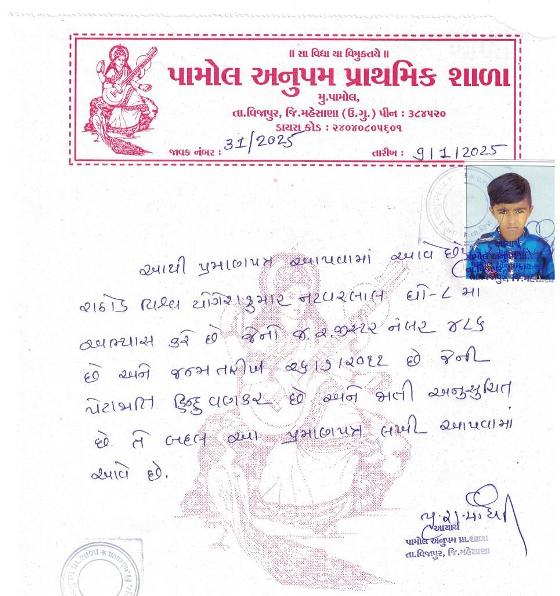 ॥ સા વિદ્યા યા વિમુક્તયે ॥
પામોલ અનુપમ પ્રાથમિક શાળા
મુ.પામોલ,
તા.વિજાપુર, જિ.મહેસાણા (ઉ.ગુ.) પીન : ૩૮૪૫૨૦
ડાયસ કોડ : ૨૪૦૪૦૮૦૫૬૦૧
જાવક નંબર : 31/2025 તારીખ : 9/1/2025
આથી પ્રમાણપત્ર આપવામાં આવે છે
રાઠોડ વિશ્વ યોગેશકુમાર નટવરલાલ ધો-૮ માં
અભ્યાસ કરે છે જેનો જ.ર.જીસ્ટર નંબર ૪૮૬
છે અને જન્મ તારીખ ૨૬/૭/૨૦૧૧ છે જેની
પેટાજાતિ હિન્દુ વણકર છે અને જાતી અનુસુચિત
છે તે બદલ આ પ્રમાણપત્ર લખી આપવામાં
આવે છે.
આચાર્ય
પામોલ અનુપમ પ્રા.શાળા
તા.વિજાપુર, જિ.મહેસાણા